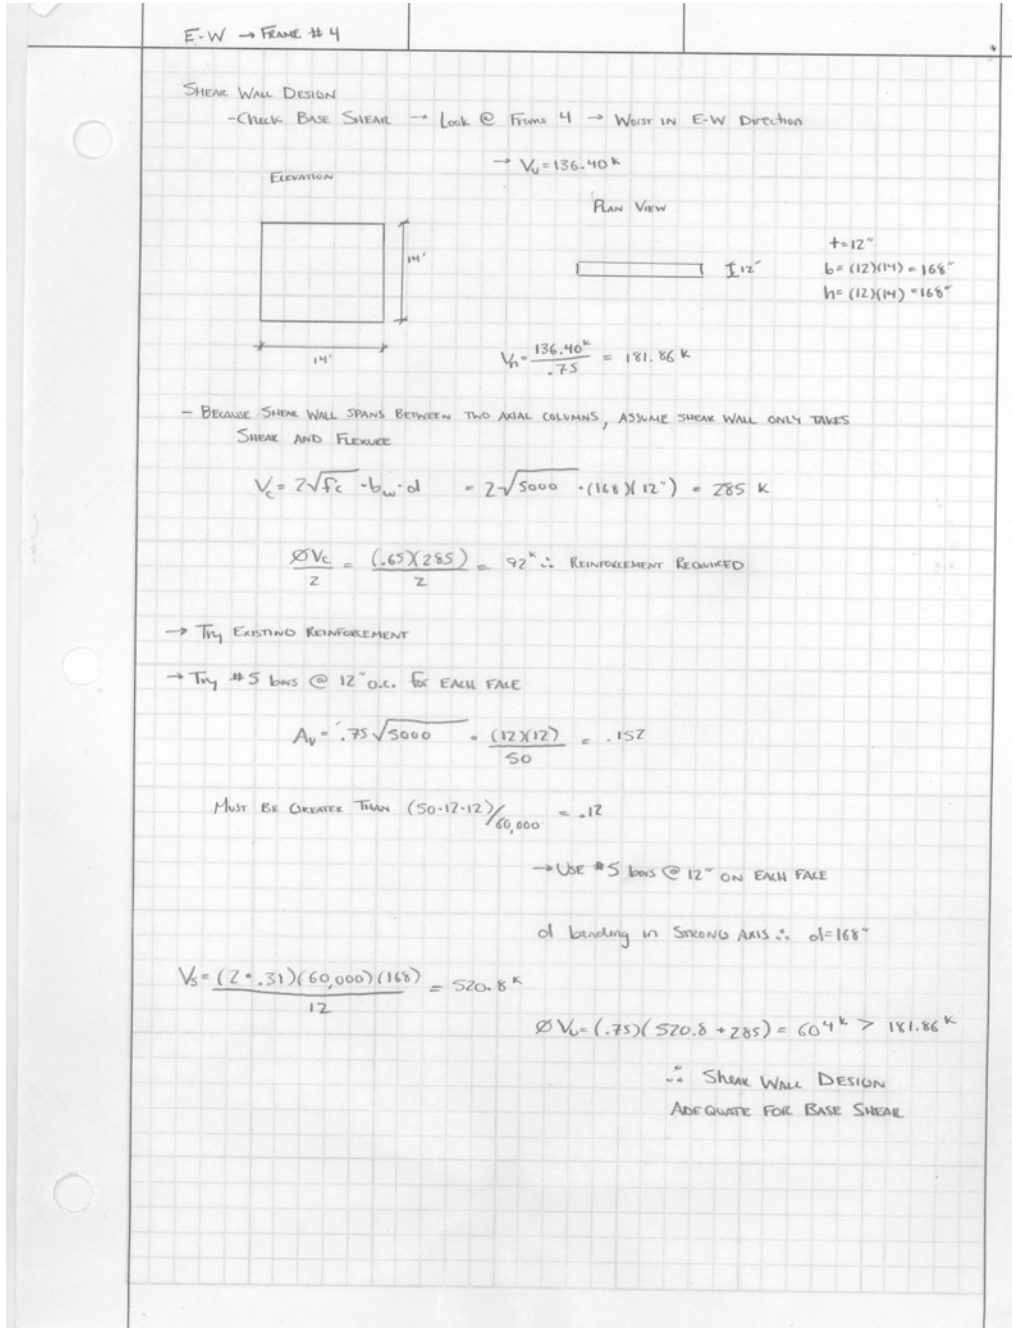 E-W → FRAME # 4
SHEAR WALL DESIGN
- CHECK BASE SHEAR → Look @ Frame 4 → WORST IN E-W Direction
→ Vu = 136.40 k
ELEVATION
PLAN VIEW
14'
12"
t = 12"
b = (12)(14) = 168"
h = (12)(14) = 168"
14'
Vn = 136.40k / .75 = 181.86 k
- BECAUSE SHEAR WALL SPANS BETWEEN TWO AXIAL COLUMNS, ASSUME SHEAR WALL ONLY TAKES
SHEAR AND FLEXURE
Vc = 2√f'c · bw · d = 2√5000 · (168)(12") = 285 K
ØVc / 2 = (.65)(285) / 2 = 92k ∴ REINFORCEMENT REQUIRED
→ Try EXISTING REINFORCEMENT
→ Try #5 bars @ 12" o.c. for EACH FACE
Av = .75√5000 · (12)(12) / 50 = .152
MUST BE GREATER THAN (50·12·12)/60,000 = .12
→ USE #5 bars @ 12" ON EACH FACE
d bending in STRONG AXIS ∴ d=168"
Vs = (2·.31)(60,000)(168) / 12 = 520.8 k
ØVu = (.75)(520.8 + 285) = 604k > 181.86k
∴ SHEAR WALL DESIGN
ADEQUATE FOR BASE SHEAR